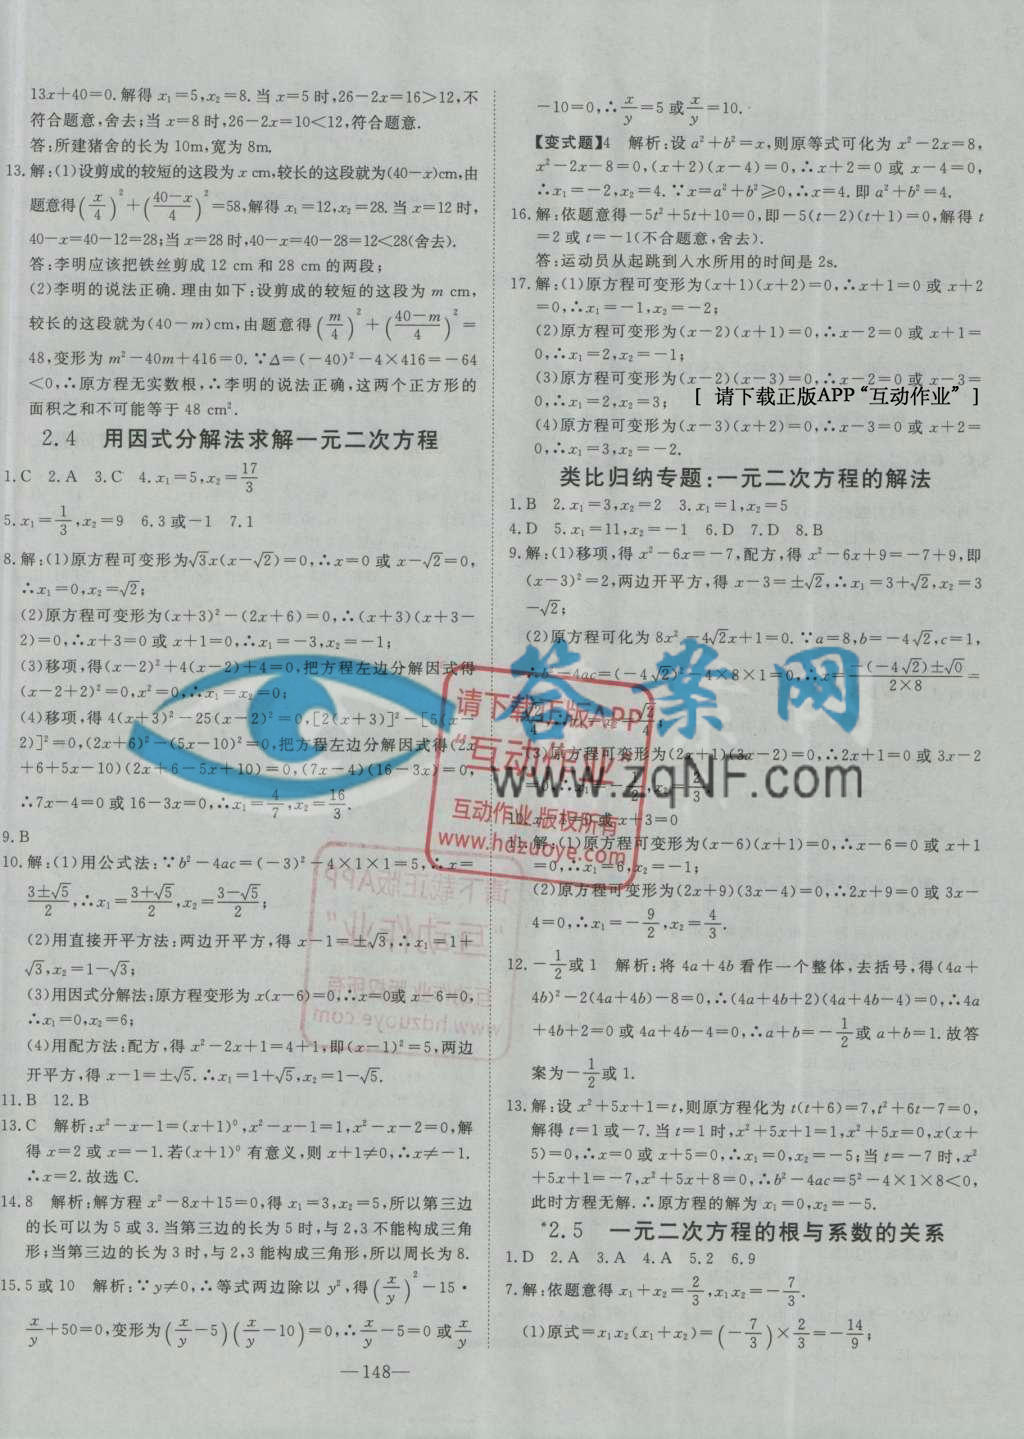 13x+40=0.解得 x₁=5,x₂=8.当 x=5 时,26-2x=16>12,不
符合题意,舍去;当 x=8 时,26-2x=10<12,符合题意.
答:所建猪舍的长为 10m,宽为 8m.
13.解:(1)设剪成的较短的这段为 x cm,较长的这段就为(40-x)cm,由
题意得(x/4)²+((40-x)/4)²=58,解得 x₁=12,x₂=28.当 x=12 时,
40-x=40-12=28;当 x=28 时,40-x=40-28=12<28(舍去).
答:李明应该把铁丝剪成 12 cm 和 28 cm 的两段;
(2)李明的说法正确.理由如下:设剪成的较短的这段为 m cm,
较长的这段就为(40-m)cm,由题意得(m/4)²+((40-m)/4)²=
48,变形为 m²-40m+416=0.∵Δ=(-40)²-4×416=-64
<0,∴原方程无实数根,∴李明的说法正确,这两个正方形的
面积之和不可能等于 48 cm².
2.4 用因式分解法求解一元二次方程
1.C 2.A 3.C 4.x₁=5,x₂=17/3
5.x₁=1/3,x₂=9 6.3 或-1 7.1
8.解:(1)原方程可变形为√3x(x-√2)=0,∴x=0 或 x-√2=0,
∴x₁=0,x₂=√2;
(2)原方程可变形为(x+3)²-(2x+6)=0,∴(x+3)(x+3-
2)=0,∴x+3=0 或 x+1=0,∴x₁=-3,x₂=-1;
(3)移项,得(x-2)²+4(x-2)+4=0,把方程左边分解因式得
(x-2+2)²=0,∴x₁=x₂=0;
(4)移项,得 4(x+3)²-25(x-2)²=0,[2(x+3)]²-[5(x-
2)]²=0,(2x+6)²-(5x-10)²=0,把方程左边分解因式得(2x
+6+5x-10)(2x+6-5x+10)=0,(7x-4)(16-3x)=0,
∴7x-4=0 或 16-3x=0,∴x₁=4/7,x₂=16/3.
9.B
10.解:(1)用公式法:∵b²-4ac=(-3)²-4×1×1=5,∴x=
(3±√5)/2,∴x₁=(3+√5)/2,x₂=(3-√5)/2;
(2)用直接开平方法:两边开平方,得 x-1=±√3,∴x₁=1+
√3,x₂=1-√3;
(3)用因式分解法:原方程变形为 x(x-6)=0,∴x=0或 x-6=0,
∴x₁=0,x₂=6;
(4)用配方法:配方,得 x²-2x+1=4+1,即(x-1)²=5,两边
开平方,得 x-1=±√5.∴x₁=1+√5,x₂=1-√5.
11.B 12.B
13.C 解析:x²-x-1=(x+1)⁰,x²-x-1=1,x²-x-2=0,解
得 x=2 或 x=-1.若(x+1)⁰ 有意义,则 x+1≠0,∴x≠-1.
∴x=2.故选 C.
14.8 解析:解方程 x²-8x+15=0,得 x₁=3,x₂=5,所以第三边
的长可以为 5 或 3.当第三边的长为 5 时,与 2,3 不能构成三角
形;当第三边的长为 3 时,与 2,3 能构成三角形,所以周长为 8.
15.5 或 10 解析:∵y≠0,∴等式两边除以 y²,得(x/y)²-15·
x/y+50=0,变形为(x/y-5)(x/y-10)=0,∴x/y-5=0 或x/y
-10=0,∴x/y=5 或x/y=10.
【变式题】4 解析:设 a²+b²=x,则原等式可化为 x²-2x=8,
x²-2x-8=0,(x+2)(x-4)=0,∴x+2=0 或 x-4=0,
∴x₁=-2,x₂=4.∵x=a²+b²≥0,∴x=4.即 a²+b²=4.
16.解:依题意得-5t²+5t+10=0,即-5(t-2)(t+1)=0,解得 t
=2 或 t=-1(不合题意,舍去).
答:运动员从起跳到入水所用的时间是 2s.
17.解:(1)原方程可变形为(x+1)(x+2)=0,∴x+1=0 或 x+2
=0,∴x₁=-1,x₂=-2;
(2)原方程可变形为(x-2)(x+1)=0,∴x-2=0 或 x+1=
0,∴x₁=2,x₂=-1;
(3)原方程可变形为(x-2)(x-3)=0,∴x-2=0 或 x-3=
0,∴x₁=2,x₂=3;
[ 请下载正版APP“互动作业” ]
(4)原方程可变形为(x-3)(x+2)=0,∴x-3=0 或 x+2=
0,∴x₁=3,x₂=-2.
类比归纳专题:一元二次方程的解法
1.B 2.x₁=3,x₂=2 3.x₁=1,x₂=5
4.D 5.x₁=11,x₂=-1 6.D 7.D 8.B
9.解:(1)移项,得 x²-6x=-7,配方,得 x²-6x+9=-7+9,即
(x-3)²=2,两边开平方,得 x-3=±√2,∴x₁=3+√2,x₂=3
-√2;
(2)原方程可化为 8x²-4√2x+1=0.∵a=8,b=-4√2,c=1,
∴b²-4ac=(-4√2)²-4×8×1=0,∴x=(-(-4√2)±√0)/(2×8)=
√2/4,∴x₁=x₂=√2/4;
(3)原方程可变形为(2x+1)(3x-2)=0,∴2x+1=0 或 3x-2
=0,∴x₁=-1/2,x₂=2/3.
11.解:(1)原方程可变形为(x-6)(x+1)=0,∴x-6=0 或 x+1
=0,∴x₁=6,x₂=-1;
(2)原方程可变形为(2x+9)(3x-4)=0,∴2x+9=0 或 3x-
4=0,∴x₁=-9/2,x₂=4/3.
12.-1/2或 1 解析:将 4a+4b 看作一个整体,去括号,得(4a+
4b)²-2(4a+4b)-8=0,∴(4a+4b+2)(4a+4b-4)=0,∴4a
+4b+2=0 或 4a+4b-4=0,∴a+b=-1/2或 a+b=1.故答
案为-1/2或 1.
13.解:设 x²+5x+1=t,则原方程化为 t(t+6)=7,t²+6t-7=0,
解得 t=1 或-7.当 t=1 时,x²+5x+1=1,x²+5x=0,x(x+
5)=0,∴x=0 或 x+5=0,∴x₁=0,x₂=-5;当 t=-7 时,x²
+5x+1=-7,x²+5x+8=0,∴b²-4ac=5²-4×1×8<0,
此时方程无解.∴原方程的解为 x₁=0,x₂=-5.
*2.5 一元二次方程的根与系数的关系
1.D 2.A 3.A 4.A 5.2 6.9
7.解:依题意得 x₁+x₂=2/3,x₁x₂=-7/3.
(1)原式=x₁x₂(x₁+x₂)=(-7/3)×2/3=-14/9;
—148—
答案网
www.zqNF.com
请下载正版APP
“互动作业”
互动作业 版权所有
www.hdzuoye.com